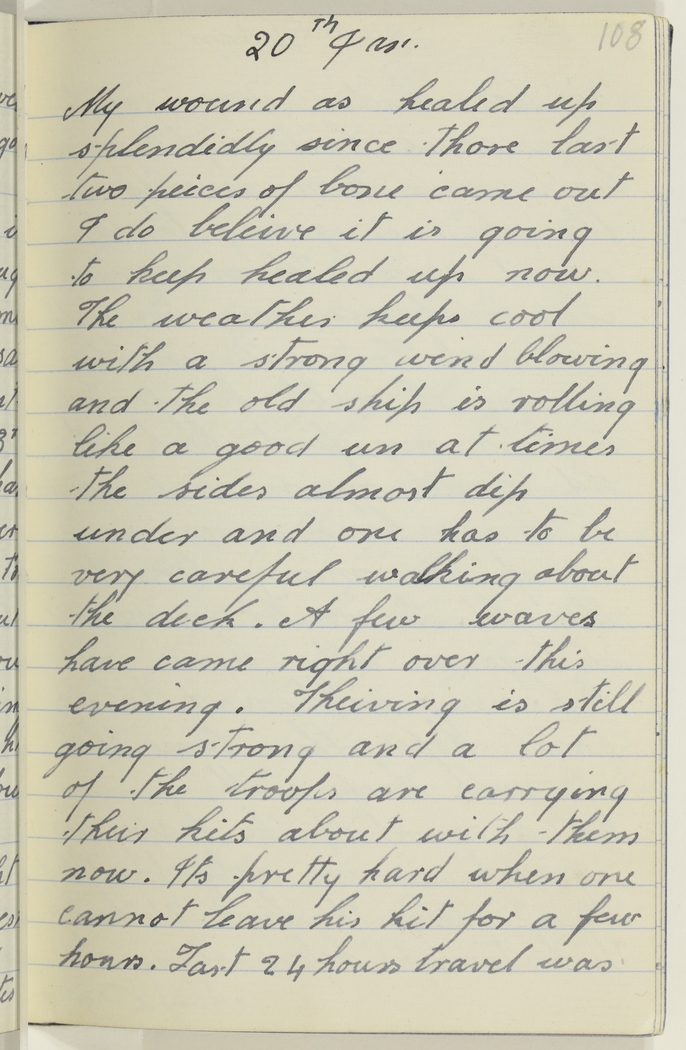 108
20th Jan.
My wound as healed up
splendidly since those last
two peices of bone came out
I do beleive it is going
to keep healed up now.
The weather keeps cool
with a strong wind blowing
and the old ship is rolling
like a good un at times
the sides almost dip
under and one has to be
very careful walking about
the deck. A few waves
have came right over this
evening. Theiving is still
going strong and a lot
of the troops are carrying
their kits about with them
now. Its pretty hard when one
cannot leave his kit for a few
hours. Last 24 hours travel was